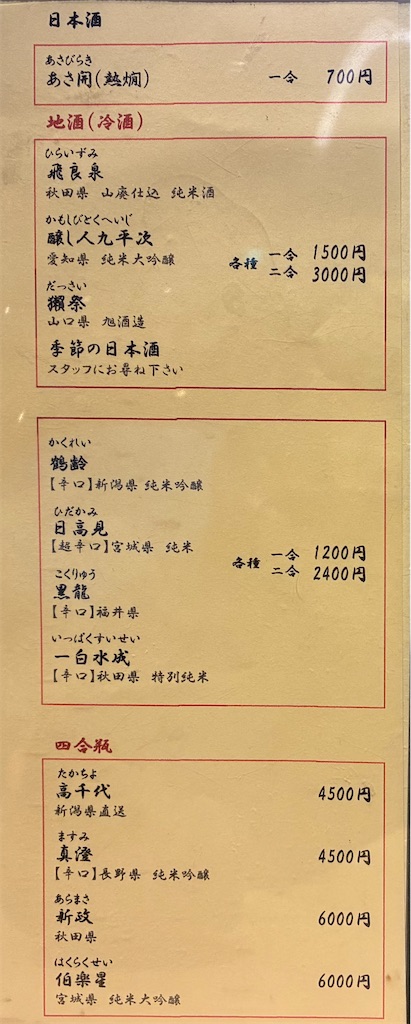 日本酒
あさびらき
あさ開(熱燗) 一合 700円
地酒(冷酒)
ひらいずみ
飛良泉
秋田県 山廃仕込 純米酒
かもしびとくへいじ
醸し人九平次
愛知県 純米大吟醸
各種 一合 1500円
二合 3000円
だっさい
獺祭
山口県 旭酒造
季節の日本酒
スタッフにお尋ね下さい
かくれい
鶴齢
【辛口】新潟県 純米吟醸
ひだかみ
日高見
【超辛口】宮城県 純米
各種 一合 1200円
二合 2400円
こくりゅう
黒龍
【辛口】福井県
いっぱくすいせい
一白水成
【辛口】秋田県 特別純米
四合瓶
たかちよ
高千代 4500円
新潟県直送
ますみ
真澄 4500円
【辛口】長野県 純米吟醸
あらまさ
新政 6000円
秋田県
はくらくせい
伯楽星 6000円
宮城県 純米大吟醸